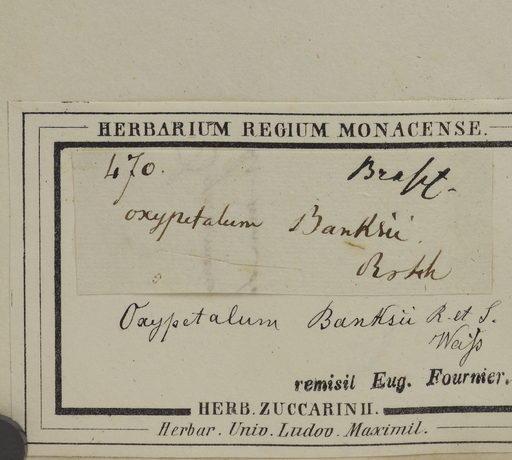 HERBARIUM REGIUM MONACENSE.
470.
oxypetalum Banksii.
Oxypetalum Banksii R. et S.
Weiſs
remisit Eug. Fournier.
HERB. ZUCCARINII.
Herbar. Univ. Ludov. Maximil.